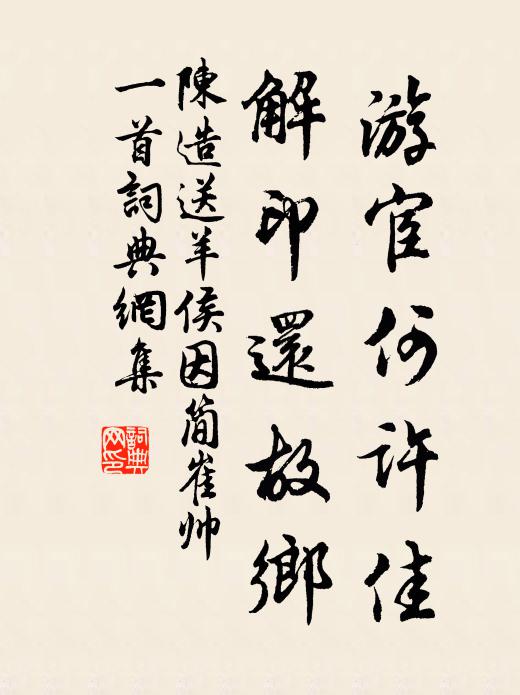 游宦何許佳
解印還故鄉
陳造送羊侯因簡崔帅
一首詞典網集
詞典网印